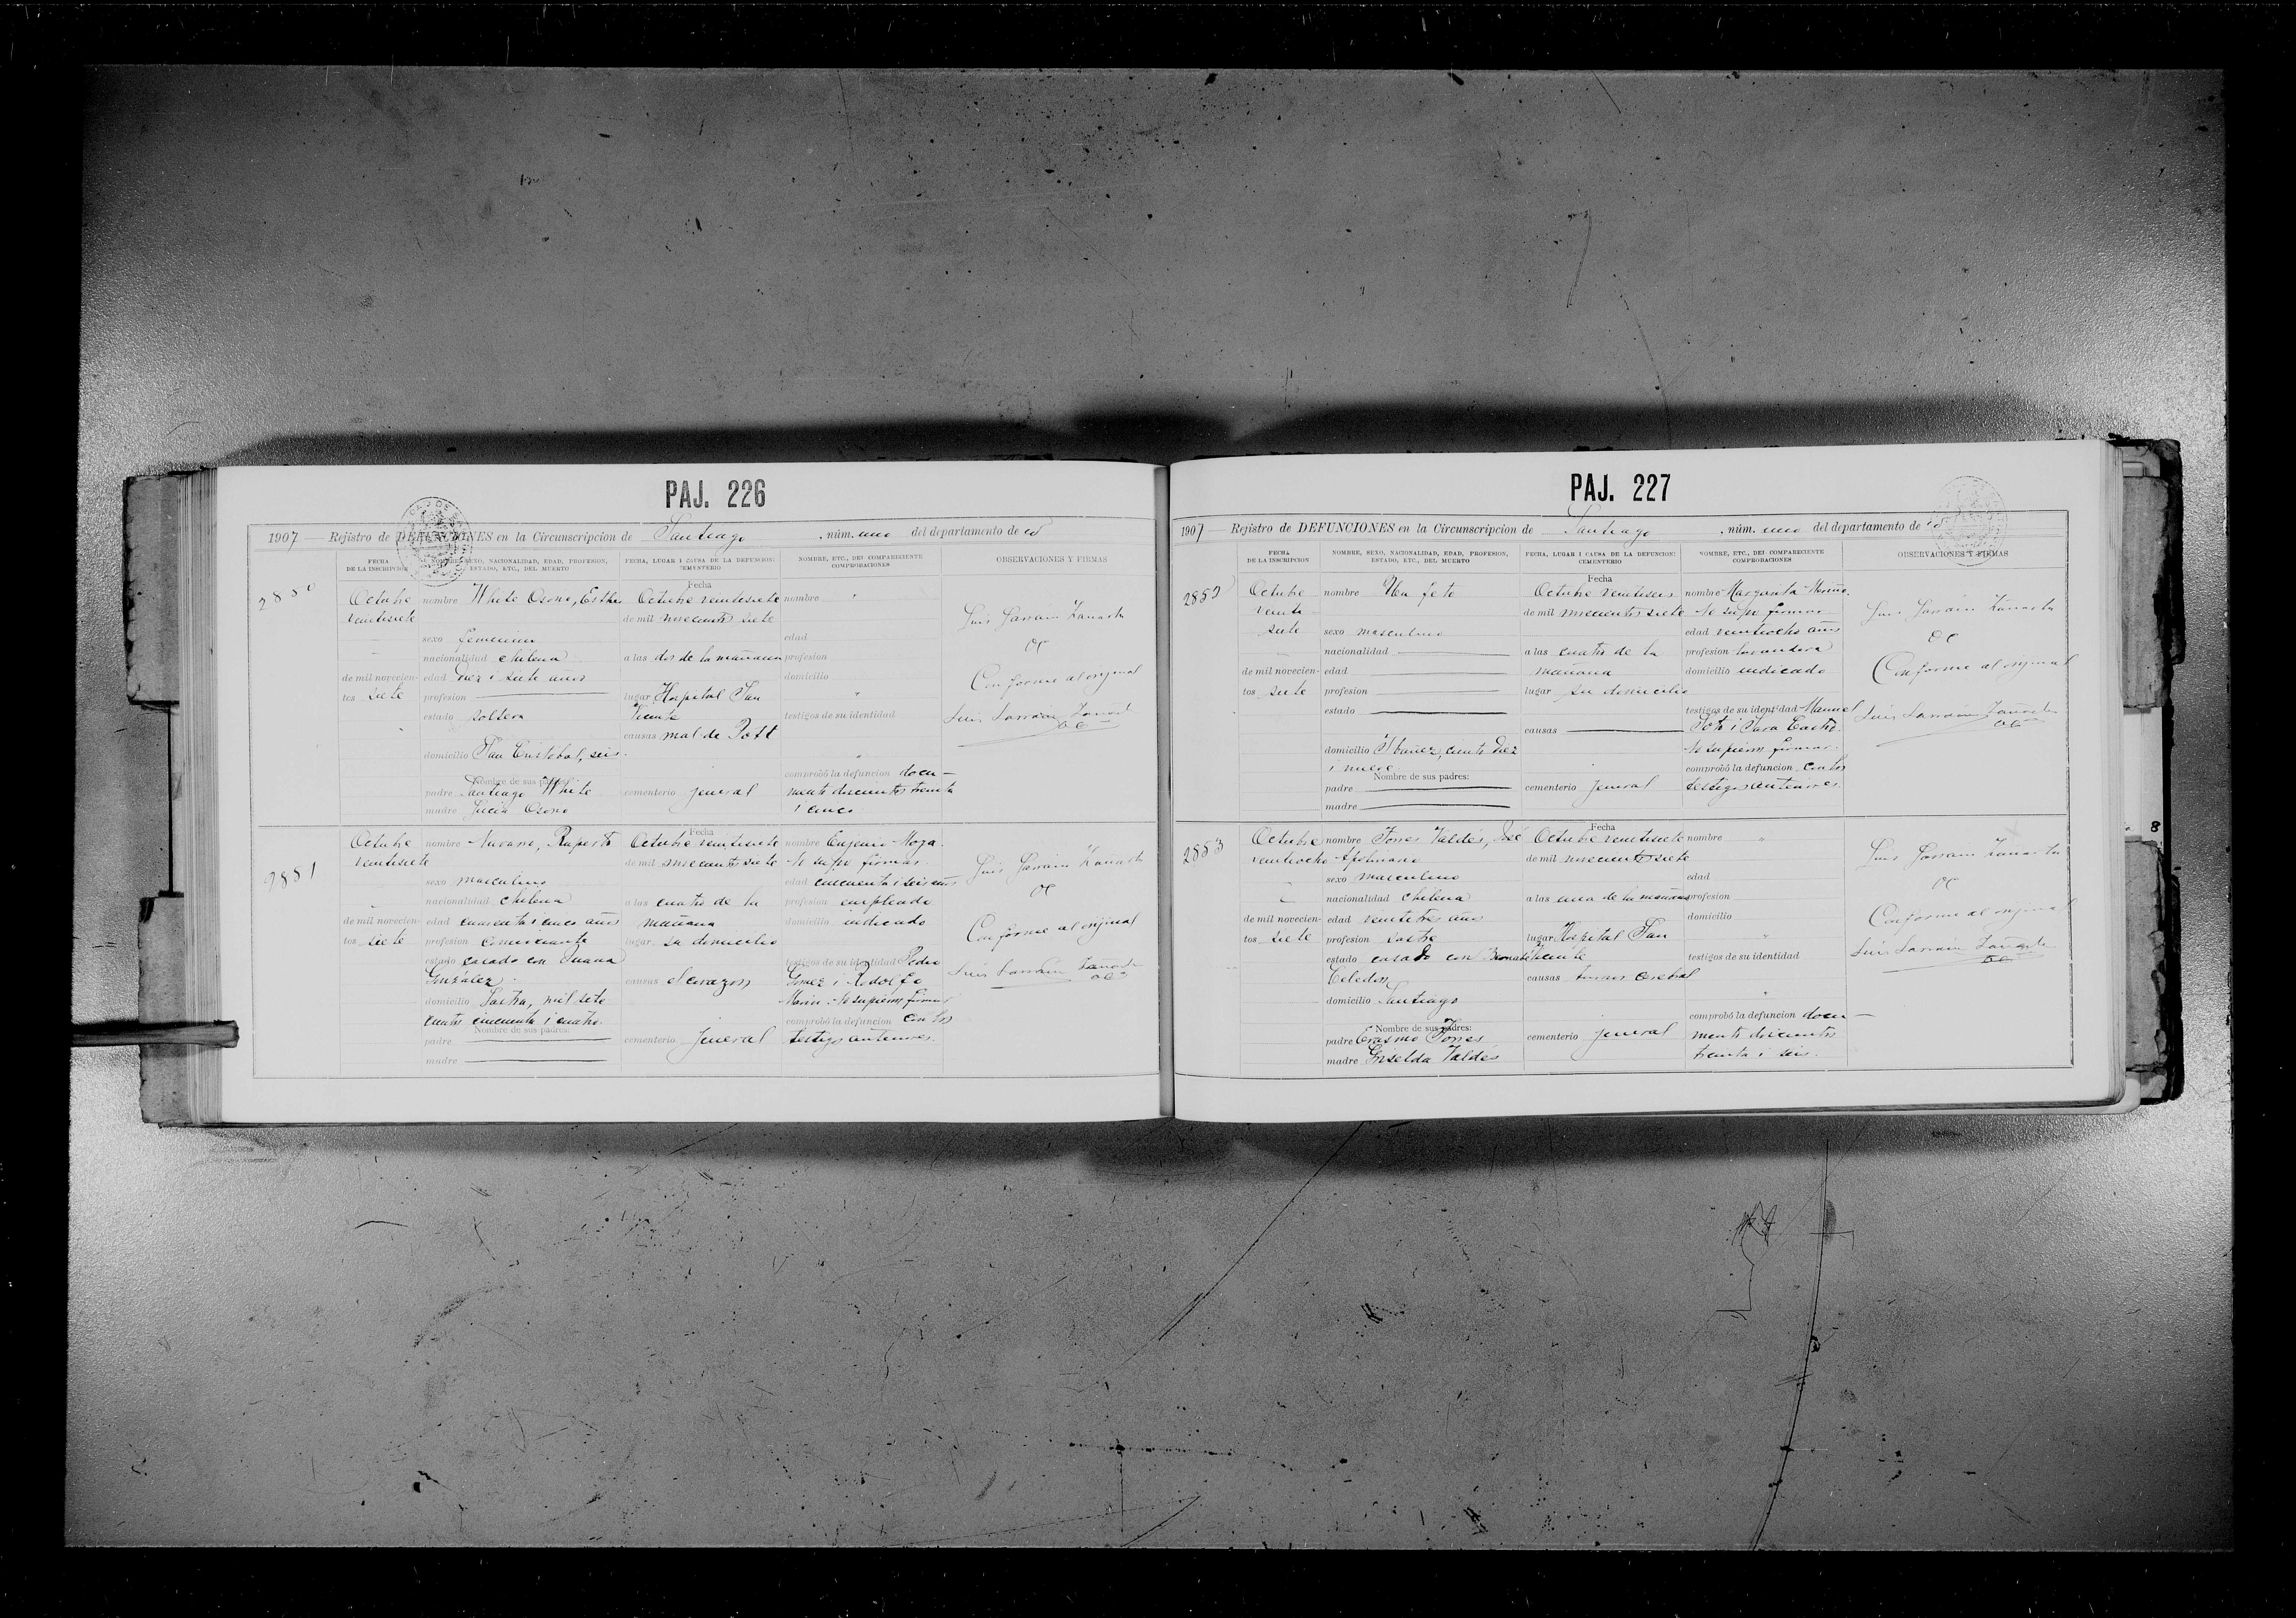 PAJ. 226
1907 — Rejistro de DEFUNCIONES en la Circunscripcion de Santiago núm. uno del departamento de id
FECHA DE LA INSCRIPCION
NOMBRE, SEXO, NACIONALIDAD, EDAD, PROFESION, ESTADO, ETC., DEL MUERTO
FECHA, LUGAR I CAUSA DE LA DEFUNCION: CEMENTERIO
NOMBRE, ETC., DEL COMPARECIENTE COMPROBACIONES
OBSERVACIONES Y FIRMAS
2850
Octubre
veintisiete
de mil novecien-
tos siete
nombre White Osono, Esther
sexo femenino
nacionalidad chilena
edad diez i siete años
profesion
estado soltera
domicilio San Cristobal, seis.
Nombre de sus padres:
padre Santiago White
madre Lucia Osono
Fecha
Octubre veintisiete
de mil novecientos siete
a las dos de la mañana
lugar Hospital San
Vicente
causas mal de Pott
cementerio jeneral
nombre "
edad
profesion
domicilio
"
testigos de su identidad
"
comprobó la defuncion docu-
mento doscientos treinta
i cinco
Luis Larrain Zañartu
OC
Conforme al orijinal
Luis Larrain Zañartu
OC
2851
Octubre
veintisiete
de mil novecien-
tos siete
nombre Navarro, Ruperto
sexo masculino
nacionalidad chilena
edad cuarenta i cinco años
profesion comerciante
estado casado con Juana
González.
domicilio Sastra, mil sete
cientos cincuenta i cuatro.
Nombre de sus padres:
padre
madre
Fecha
Octubre veintisiete
de mil novecientos siete
a las cuatro de la
mañana
lugar su domicilio
causas al corazon
cementerio jeneral
nombre Eugenio Moya.
No supo firmar.
edad cincuenta i seis años
profesion empleado
domicilio indicado
testigos de su identidad Pedro
Gomez i Rodolfo
Marin. No supieron firmar
comprobó la defuncion con los
testigos anteriores.
Luis Larrain Zañartu
OC
Conforme al orijinal
Luis Larrain Zañartu
OC
PAJ. 227
1907 — Rejistro de DEFUNCIONES en la Circunscripcion de Santiago núm. uno del departamento de id
FECHA DE LA INSCRIPCION
NOMBRE, SEXO, NACIONALIDAD, EDAD, PROFESION, ESTADO, ETC., DEL MUERTO
FECHA, LUGAR I CAUSA DE LA DEFUNCION: CEMENTERIO
NOMBRE, ETC., DEL COMPARECIENTE COMPROBACIONES
OBSERVACIONES Y FIRMAS
2852
Octubre
veinte
siete
de mil novecien-
tos siete
nombre Un feto
sexo masculino
nacionalidad
edad
profesion
estado
domicilio Ibañez, ciento diez
i nueve
Nombre de sus padres:
padre
madre
Fecha
Octubre veintiseis
de mil novecientos siete
a las cuatro de la
mañana
lugar su domicilio
causas
cementerio jeneral
nombre Margarita Merino.
No supo firmar
edad veintiocho años
profesion lavandera
domicilio indicado
testigos de su identidad Manuel
Soto i Sara Castro.
No supieron firmar.
comprobó la defuncion con los
testigos anteriores.
Luis Larrain Zañartu
OC
Conforme al orijinal
Luis Larrain Zañartu
OC
2853
Octubre
veintiocho
de mil novecien-
tos siete
nombre Torres Valdés, José
sexo masculino
nacionalidad chilena
edad veintitres años
profesion sastre
estado casado con
Celedon
domicilio Santiago
Nombre de sus padres:
padre Erasmo Torres
madre Griselda Valdés
Fecha
Octubre veintisiete
de mil novecientos siete
a las una de la mañana
lugar Hospital San
Vicente
causas tumor cerebral
cementerio jeneral
nombre "
edad
profesion
domicilio
"
testigos de su identidad
"
comprobó la defuncion docu-
mento doscientos
treinta i seis.
Luis Larrain Zañartu
OC
Conforme al orijinal
Luis Larrain Zañartu
OC
8